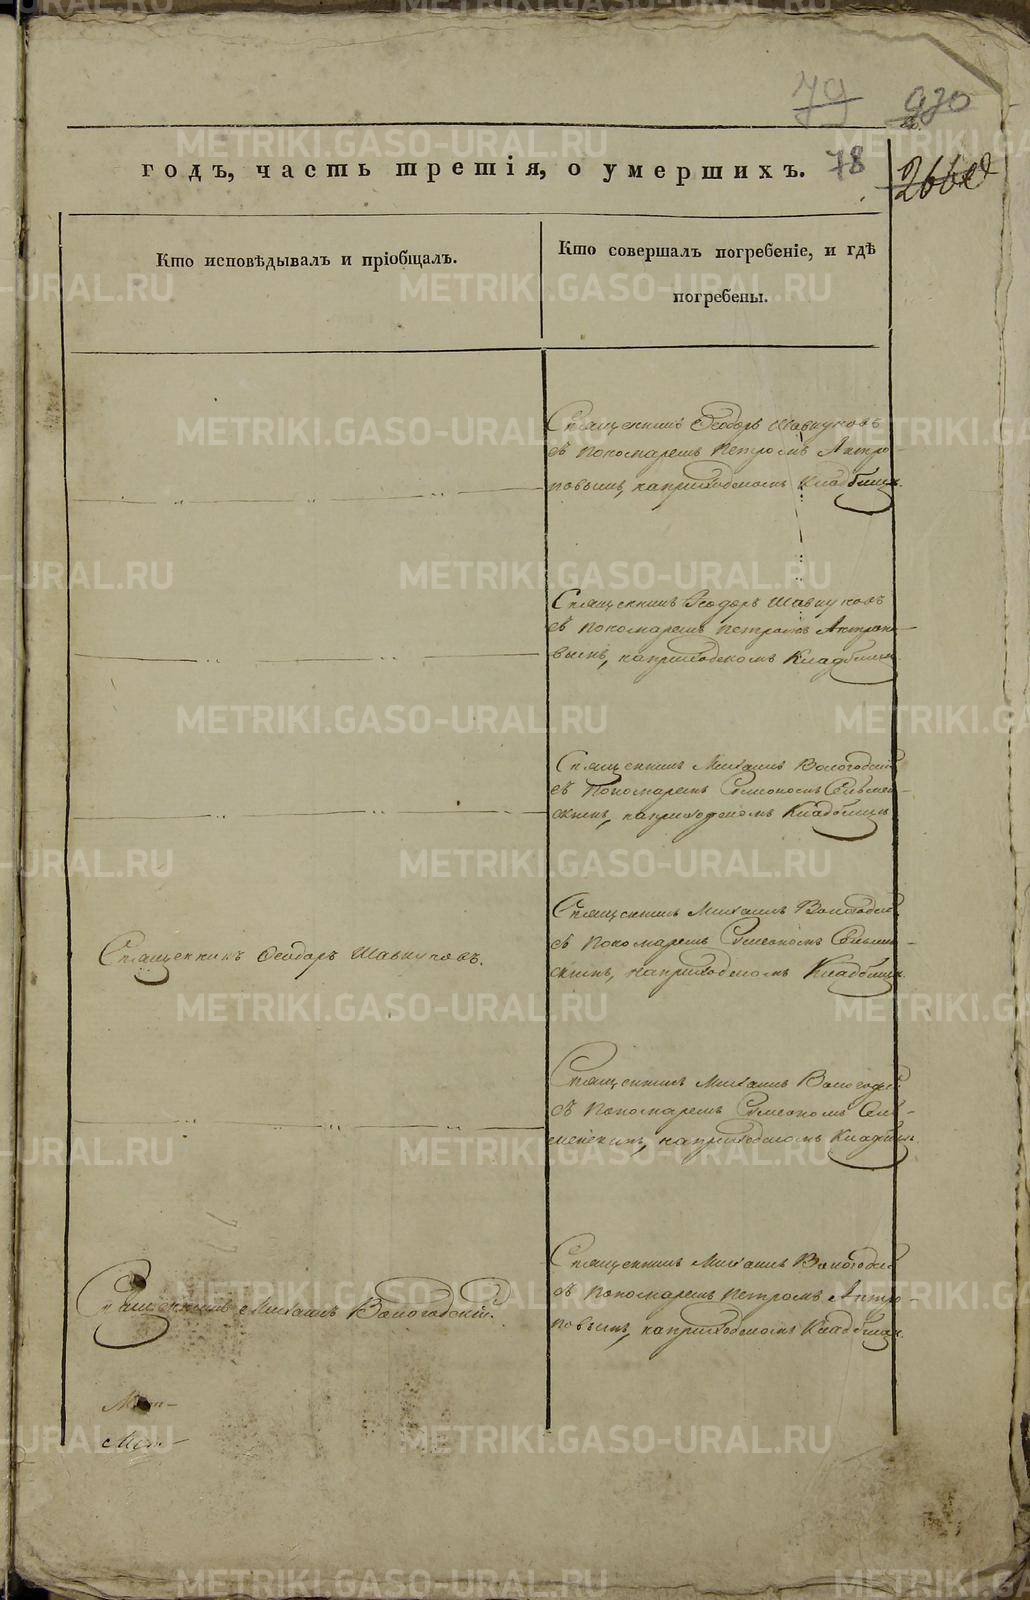 79 930
годъ, часть третія, о умершихъ. 78
Кто исповѣдывалъ и пріобщалъ.
Кто совершалъ погребеніе, и гдѣ
погребены.
Священникъ Ѳеодоръ Шавкуновъ
съ пономаремъ Петромъ Антро-
повымъ, наприходскомъ Кладбищѣ.
Священникъ Ѳеодоръ Шавкуновъ
съ пономаремъ Петромъ Антропо-
вымъ, наприходскомъ Кладбищѣ.
Священникъ Михаилъ Вологодскій
съ Пономаремъ Симеономъ
наприходскомъ Кладбищѣ
Священникъ Ѳеодоръ Шавкуновъ.
Священникъ Михаилъ Вологодскій
съ пономаремъ Симеономъ
наприходскомъ Кладбищѣ.
Священникъ Михаилъ Вологодскій
съ пономаремъ Симеономъ
наприходскомъ Кладбищѣ.
Священникъ Михаилъ Вологодскій.
Священникъ Михаилъ Вологодскій
съ Пономаремъ Петромъ Антро-
повымъ, наприходскомъ Кладбищѣ.
METRIKI.GASO-URAL.RU